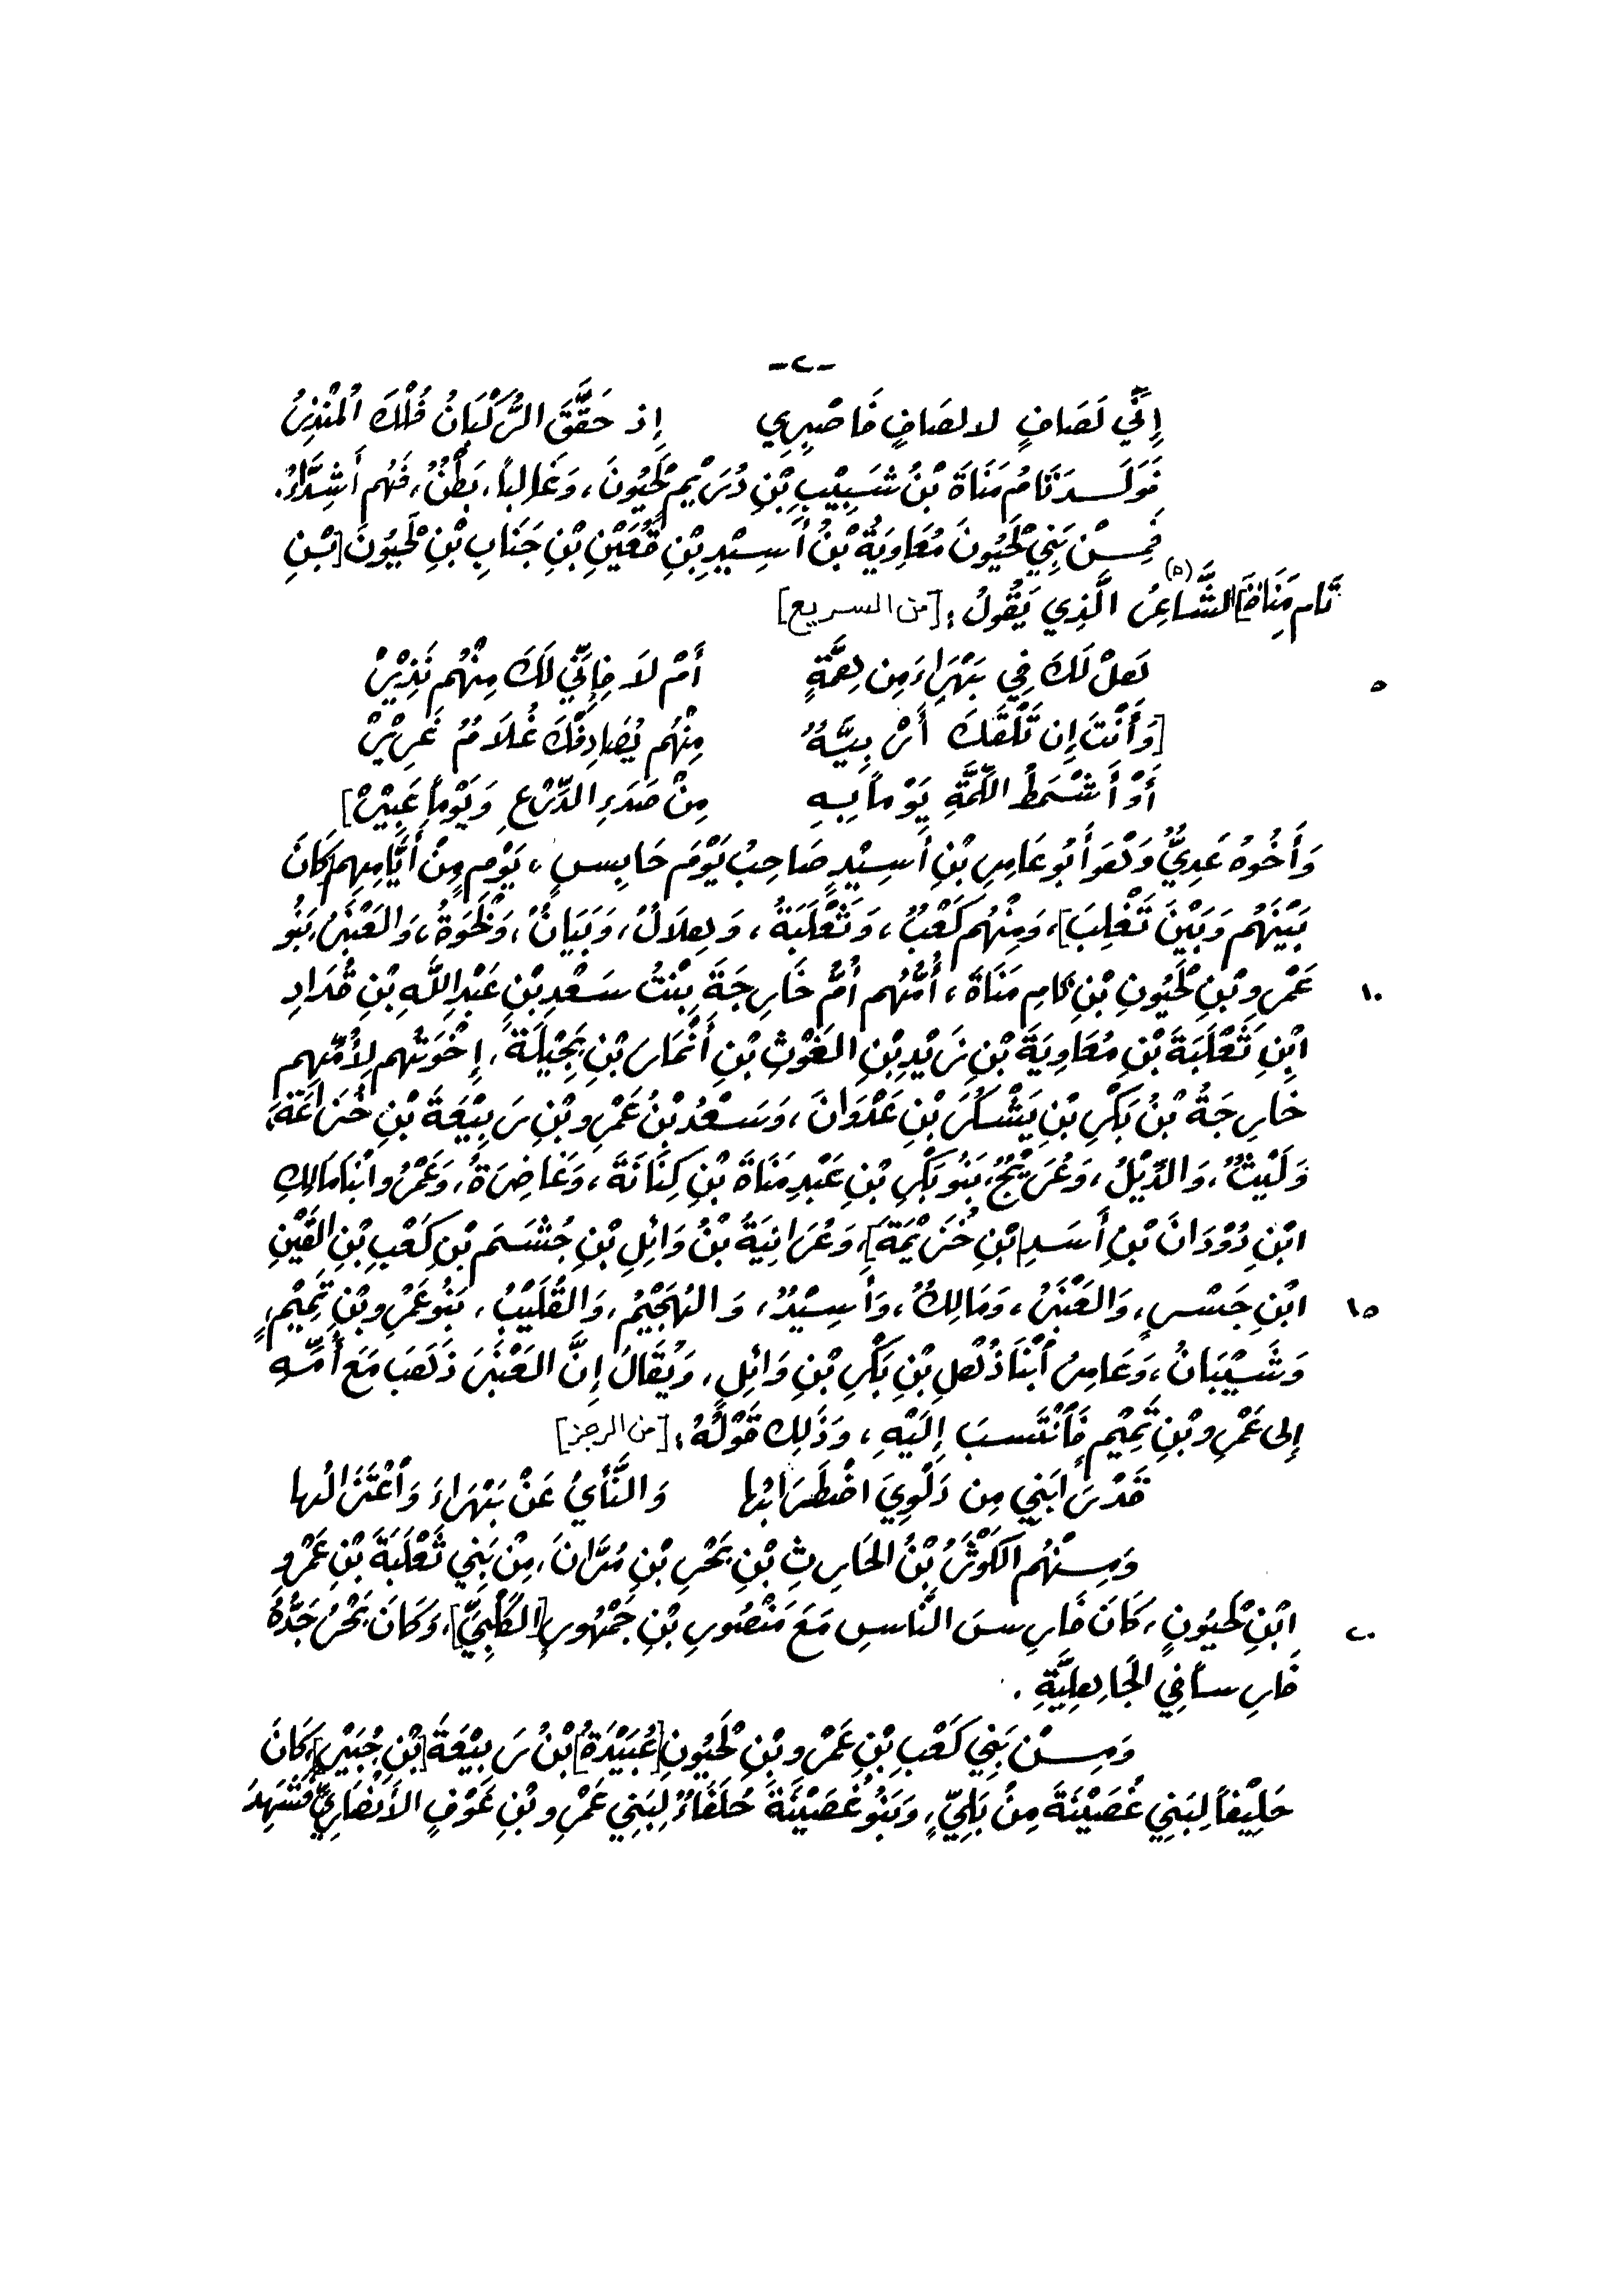 -٢-
إِنِّي لَصَافٍ لا لصَافٍ فَاصْبِرِي إِذ حَقَّقَ الرُّكْبَانُ هُلْكَ الْمُنْذِرُ
فَوَلَـدَ تَامُ مَنَاةَ بْنُ شَبِيْبِ بْنِ دُرَيْمٍ لَحْيُونَ، وَغَالِباً، بَطْنٌ، فَهُم أَشِدَّاءُ.
فَمِـنْ بَنِي لَحْيُونَ مُعَاوِيَةُ بْنُ أُسِيْدِ بْنِ قُعَيْنِ بْنِ جَنَابِ بْنِ لَحْيُونَ [بْنِ
تَام مَنَاةَ] الشَّاعِرُ (٥) الَّذِي يَقُولُ: [من السريع]
لَعلْ لَكَ فِي بَهْرَاءَ مِن نِعْمَّةٍ أَمْ لَا فَإِنِّي لَكَ مِنْهُم نَذِيْرْ ٥
[وَأَنْتَ إِن تَلْقَكَ أَرْبِيَّةٌ مِنْهُم يُصَادِفْكَ غُلَامٌ غَرِيْرْ
أَوْ أَشْمَطُ اللِّمَّةِ يَوْماً بِهِ مِنْ صَدَءِ الدِّرْعِ وَيَوْماً عَبِيْرْ]
وَأَخُوهُ عَدِيٌّ وَهْوَ أَبُو عَامِرِ بْنِ أُسِيْدٍ صَاحِبُ يَوْمَ حَابِسٍ، يَوْمٍ مِنْ أَيَّامِهِم كَانَ
بَيْنَهُم وَبَيْنَ تَغْلِبَ]، وَمِنْهُم كَعْبٌ، وَثَعْلَبَةُ، وَهِلَالٌ، وَبَيَانٌ، وَلَحْوَةُ، وَالعَنْبَرُ، بَنُو
عَمْرِو بْنِ لَحْيُونِ بْنِ تَامِ مَنَاةَ، أُمُّهُم أُمُّ خَارِجَةَ بِنْتُ سَعْدِ بْنِ عَبْدِ اللَّهِ بْنِ قُدَادِ ١٠
ابْنِ ثَعْلَبَةَ بْنِ مُعَاوِيَةَ بْنِ زَيْدِ بْنِ الغَوْثِ بْنِ أَنْمَارَ بْنِ بَجِيْلَةَ، إِخْوَتُهم لِأُمِّهِم
خَارِجَةُ بْنُ بَكْرِ بْنِ يَشْكُرَ بْنِ عَدْوَانَ، وَسَعْدُ بْنُ عَمْرِو بْنِ رَبِيْعَةَ بْنِ خُزَاعَةَ،
وَلَيْثٌ، وَالدِّيْلُ، وَعُرَيْجٌ، بَنُو بَكْرِ بْنِ عَبْدِ مَنَاةَ بْنِ كِنَانَةَ، وَغَاضِرَةُ، وَعَمْرُو ابْنَا مَالِكِ
ابْنِ دُوْدَانَ بْنِ أَسَدِ [بْنِ خُزَيْمَةَ]، وَعُرَانِيَةُ بْنُ وَائِلِ بْنِ جُشَمِ بْنِ كَعْبِ بْنِ القَيْنِ
ابْنِ جَسْرٍ، وَالعَنْبَرُ، وَمَالِكٌ، وَأُسِيْدٌ، وَالهُجَيْمُ، وَالقُلَيْبُ، بَنُو عَمْرِو بْنِ تَمِيْمٍ، ١٥
وَشَيْبَانُ، وَعَامِرُ ابْنَا ذُهْلِ بْنِ بَكْرِ بْنِ وَائِلٍ، وَيُقَالُ إِنَّ العَنْبَرَ ذَهَبَ مَعَ أُمِّهِ
إِلى عَمْرِو بْنِ تَمِيْمٍ فَانْتَسَبَ إِلَيْهِ، وَذَلِك قَوْلُهُ: [من الرجز]
قَدْ رَابَنِي مِن دَلْوِيَ اضْطِرَابُها وَالنَّأْيُ عَنْ بَهْرَاءَ وَاغْتِرَابُها
وَمِـنْهُم الكَوْثَرُ بْنُ الحَارِثِ بْنِ بَحْرِ بْنِ مُرَّانَ، مِنْ بَنِي ثَعْلَبَةَ بْنِ عَمْرِو
ابْنِ لَحْيُونٍ، كَانَ فَارِسَ النَّاسِ مَعَ مَنْصُورِ بْنِ جَمْهُورِ [الكَلْبِيِّ]، وَكَانَ بَحْرُ جَدُّهُ ٢٠
فَارِساً فِي الجَاهِلِيَّةِ.
وَمِـنْ بَنِي كَعْبِ بْنِ عَمْرِو بْنِ لَحْيُونِ [عُبَيْدَةُ] بْنُ رَبِيْعَةَ [بْنِ جُبَيْرٍ] كَانَ
حَلِيْفاً لِبَنِي غُصَيْنَةَ مِنْ بَلِيٍّ، وَبَنُو غُصَيْنَةَ حُلَفَاءُ لِبَنِي عَمْرِو بْنِ عَوْفٍ الأَنْصَارِيِّ شَهِدَ